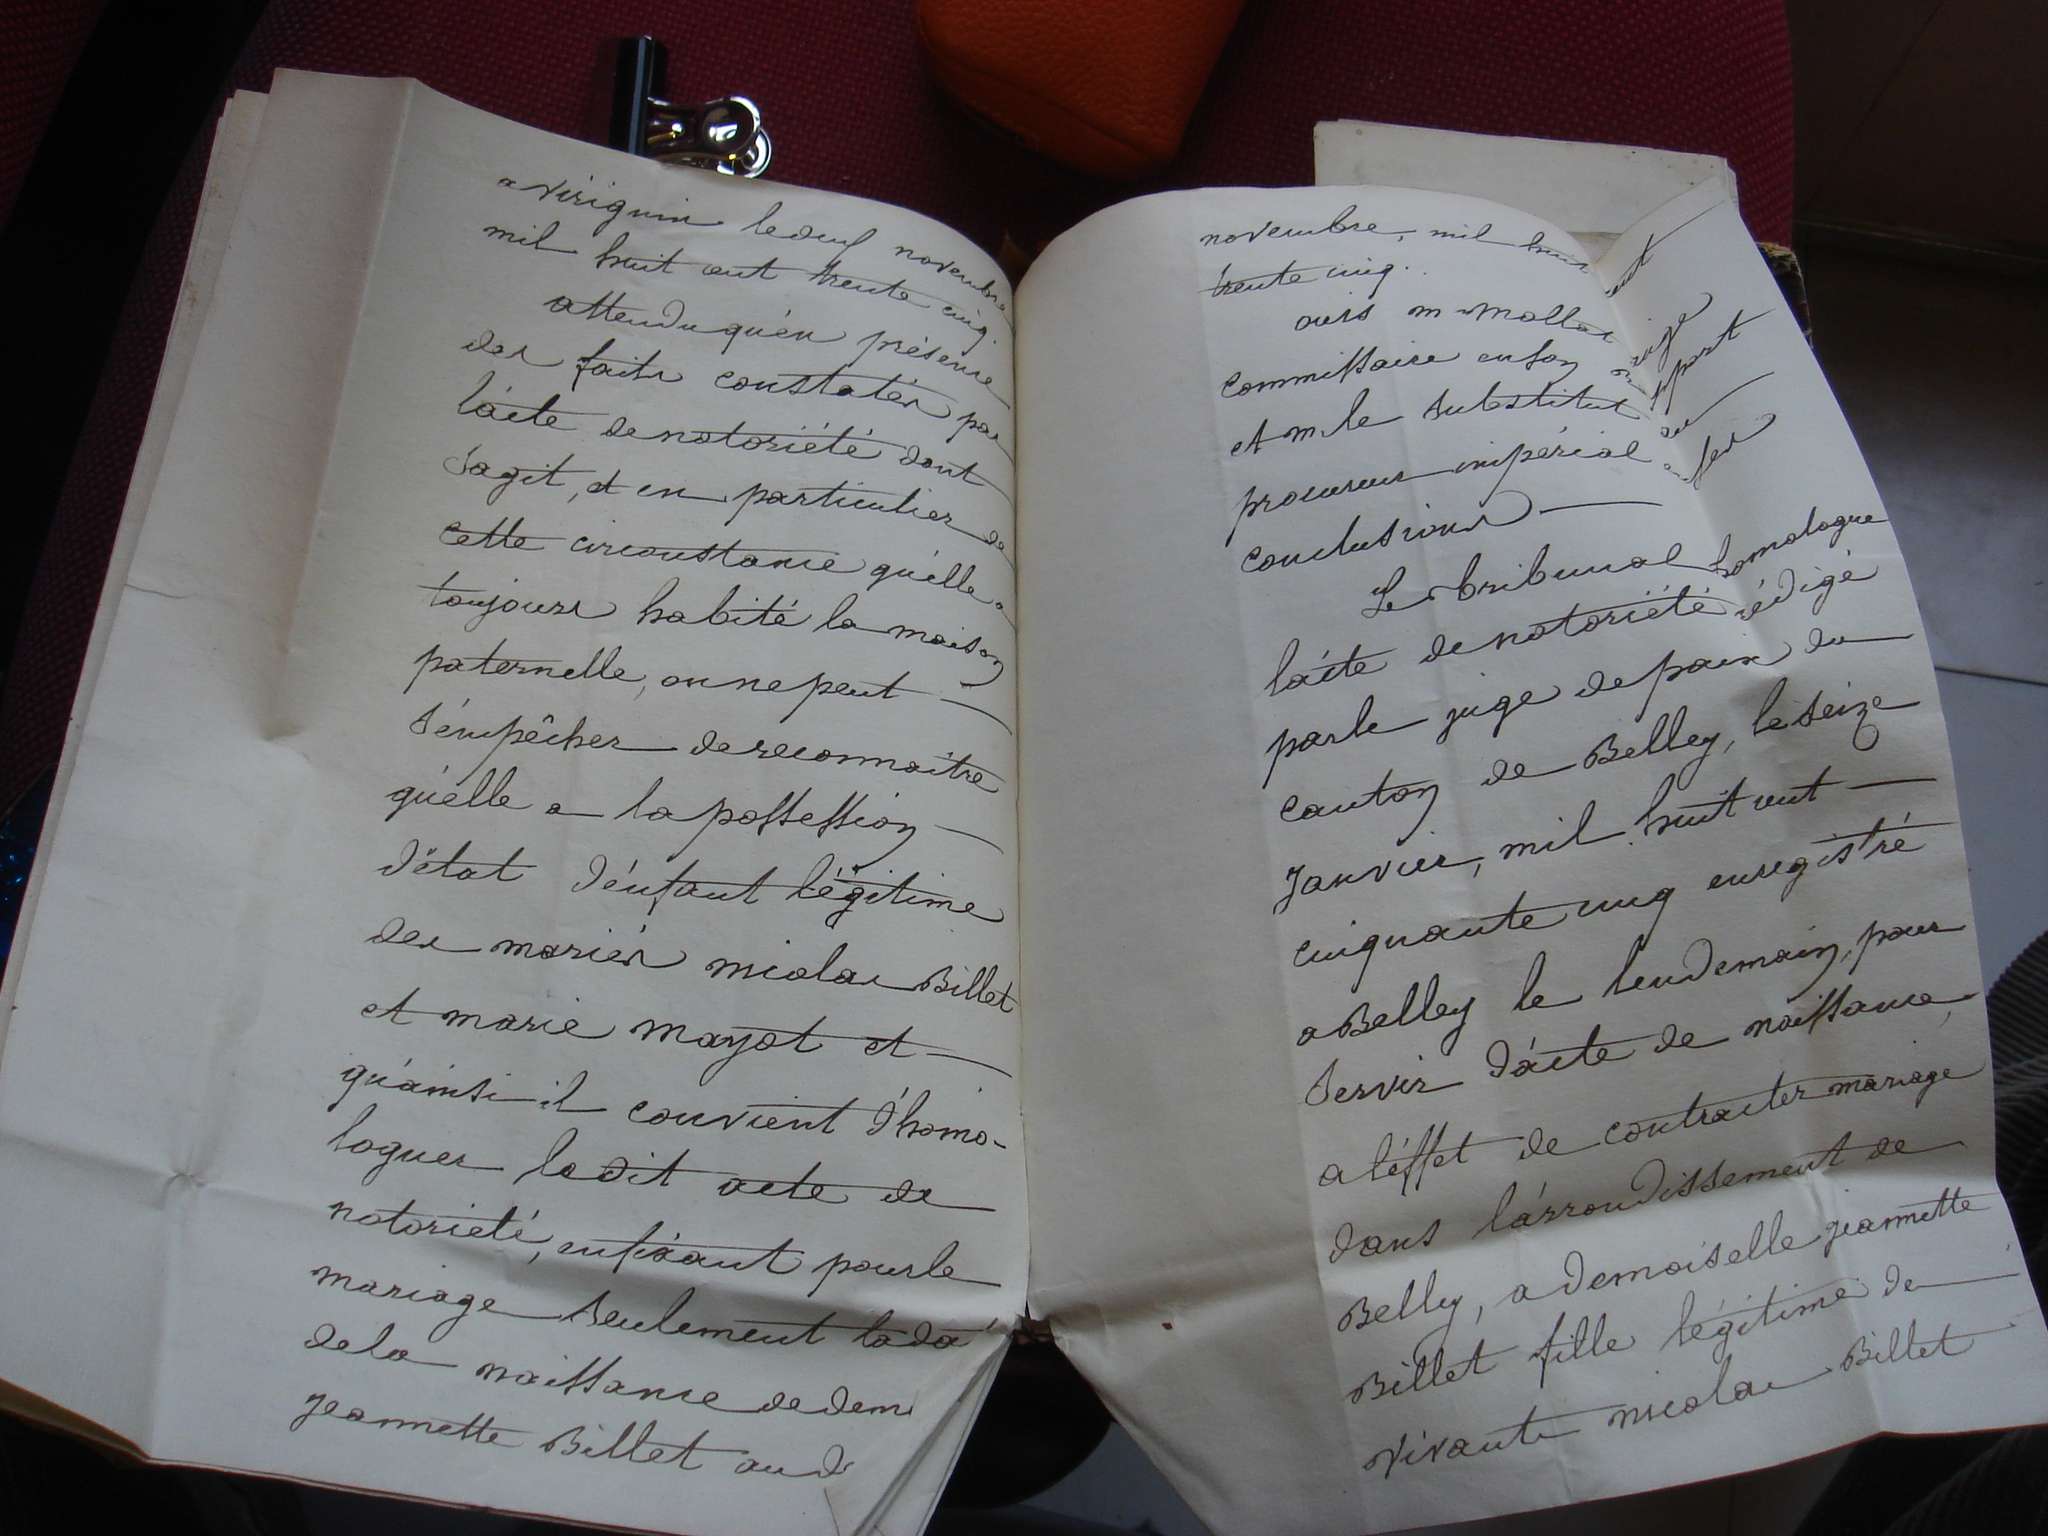 a Virignin le neuf novembre
mil huit cent trente cinq.
attendu qu'en présence
des faits constatés par
l'acte de notoriété dont
s'agit, et en particulier de
cette circonstance qu'elle a
toujours habité la maison
paternelle, on ne peut
s'émpêcher de reconnaitre
qu'elle a la possession
d'état d'énfant légitime
des mariés nicolas Billet
et marie mayot et
qu'ainsi il convient d'homo-
loguer le dit acte de
notorieté, en fixant pour le
mariage seulement la da
de la naissance de dem
jeannette Billet au d
novembre, mil huit cent
trente cinq.
ouis m mollar juge
commissaire en son rapport
et m le substitut du
procureur impérial en ses
conclusions
Le tribunal homologue
l'acte de notoriété rédigé
par le juge de paix du
canton de Belley, le seize
Janvier, mil huit cent
cinquante cinq enregistré
a Belley le lendemain, pour
servir d'acte de naissance,
a l'éffet de contracter mariage
dans l'arrondissement de
Belley, a demoiselle jeannette
Billet fille légitime de
vivants nicolas Billet